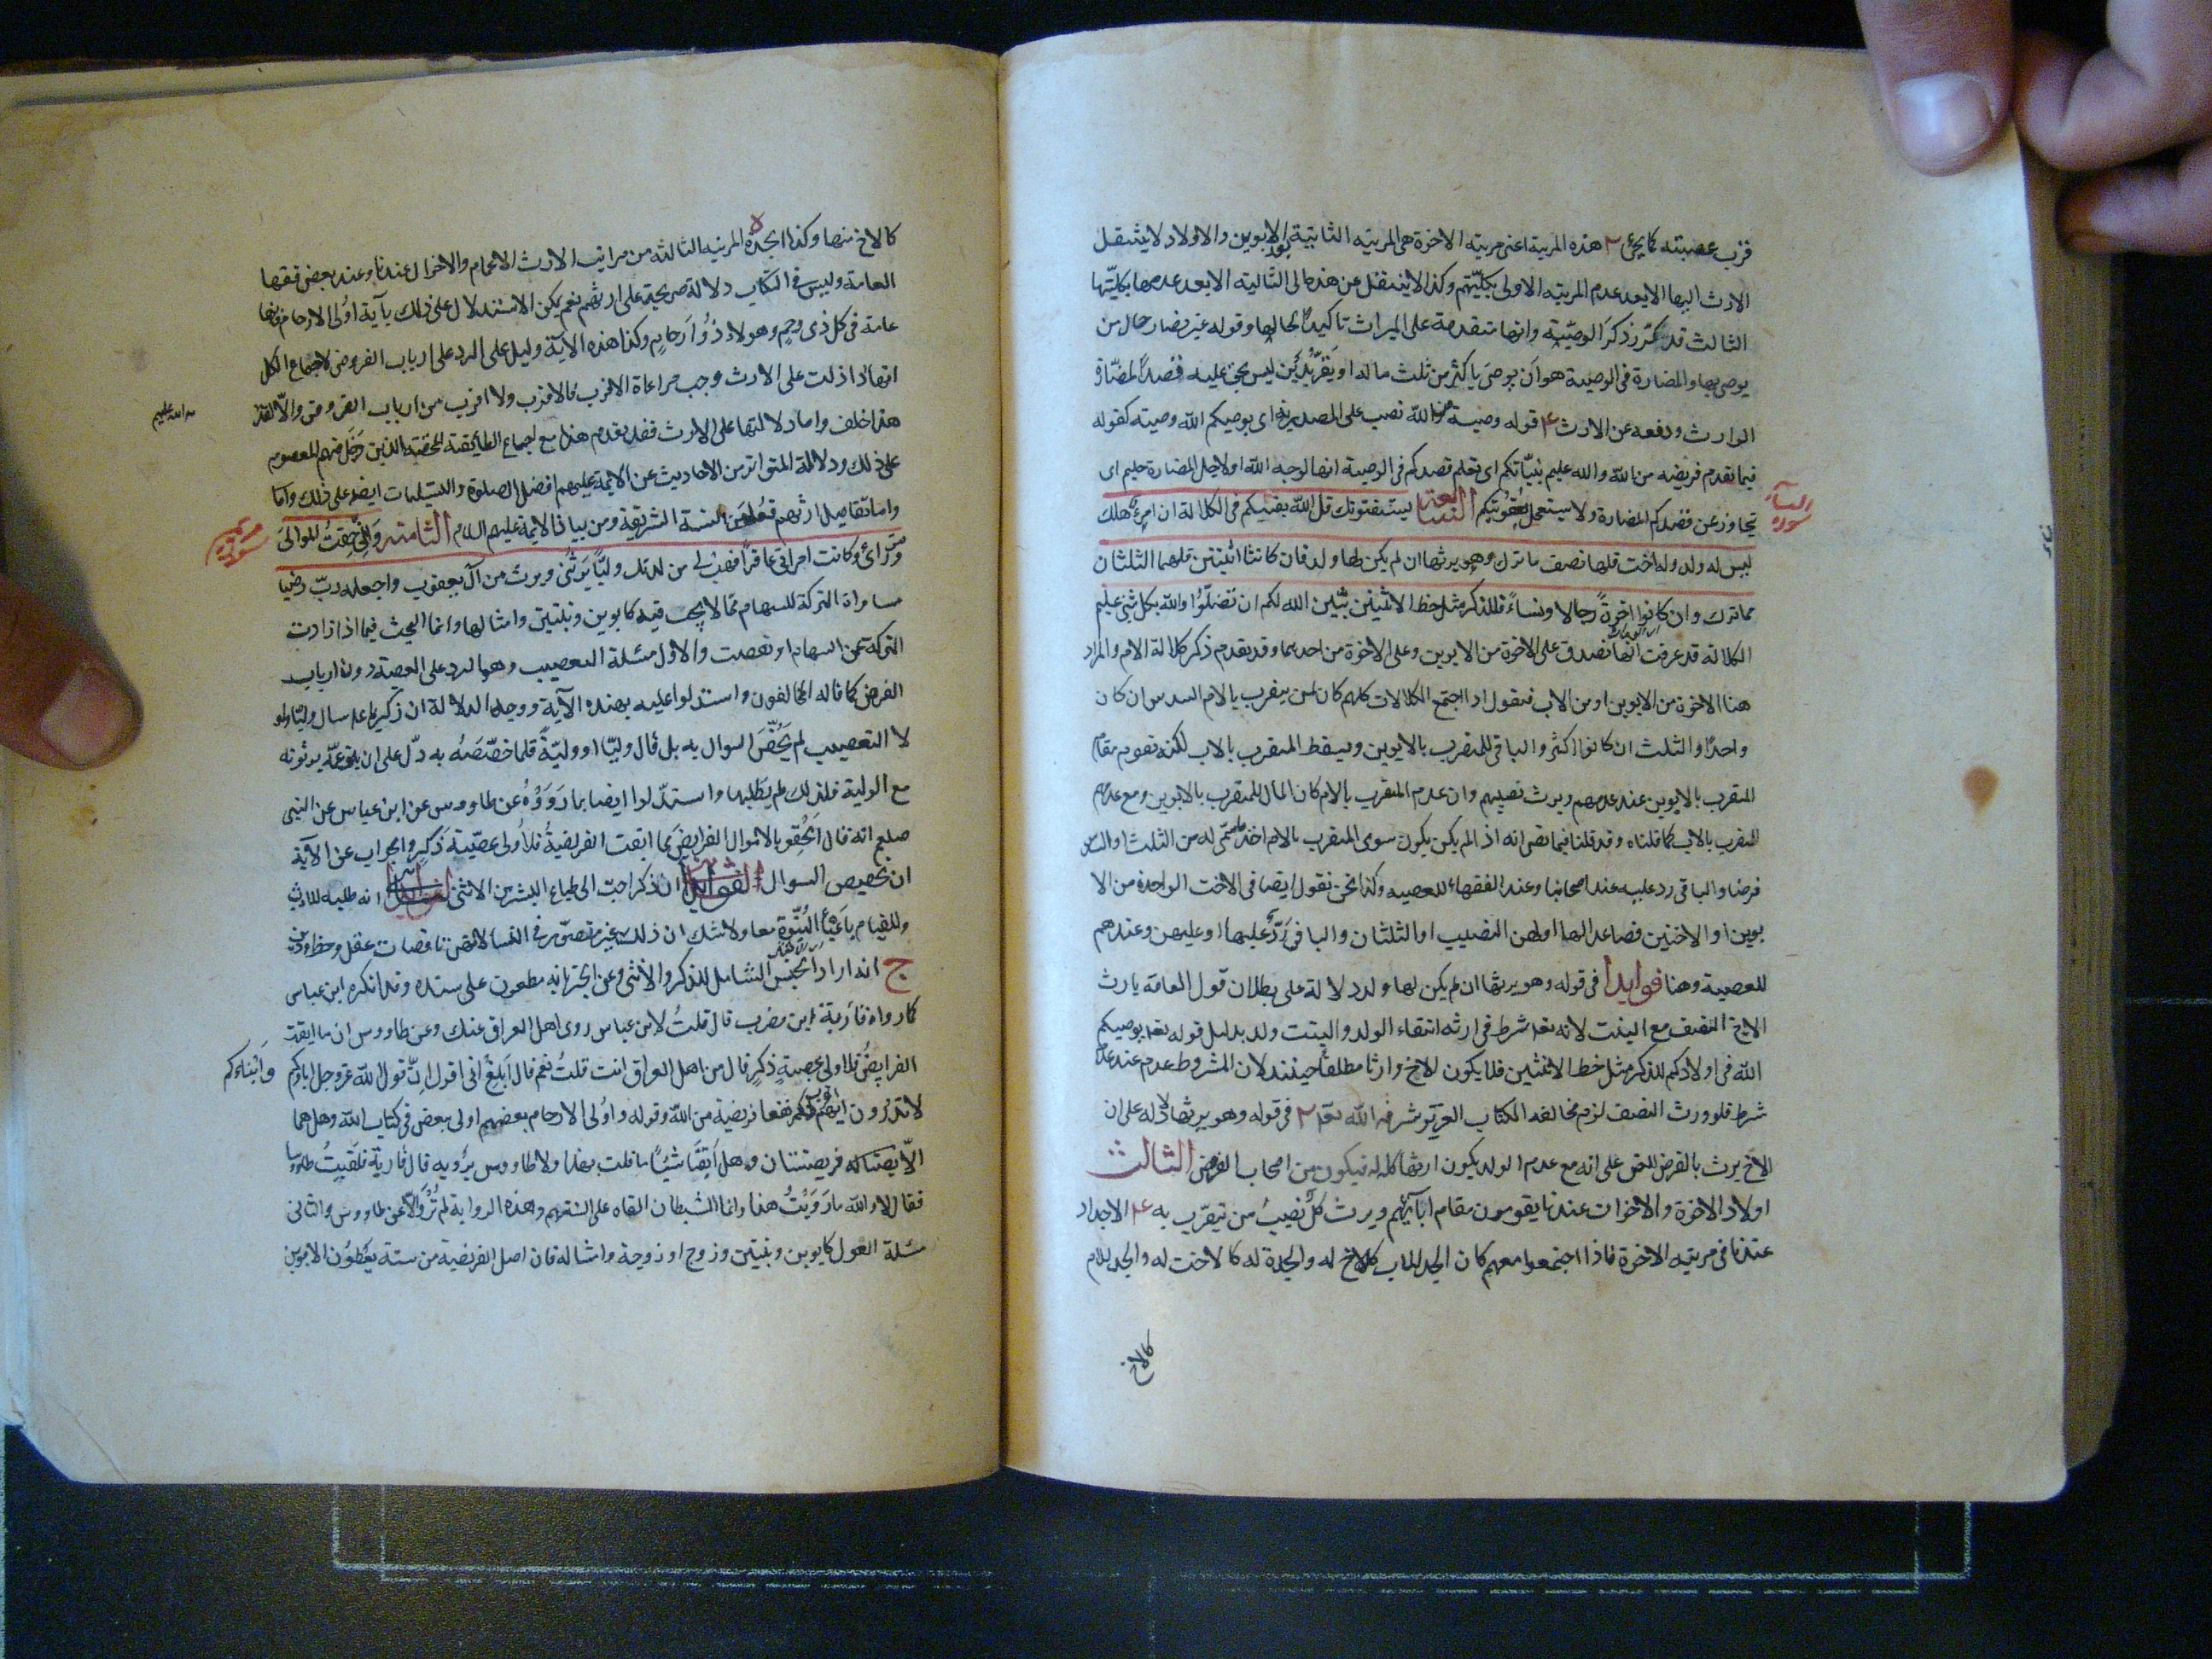 قرب عصبته كما يجئ ٢ هذه المرتبة اعنى مرتبته الاخوة هى المرتبه الثانية بعد الابوين والاولاد لا ينتقل
الارث اليها الا بعد عدم المرتبه الاولى بكليتهم وكذا لا ينتقل عن هذه الى الثالثة الا بعد عدمها بكليتها
الثالث قد كرّر ذكر الوصيّة وانها متقدمة على الميراث تاكيدا لحالها وقوله غير مضار حال من
يوصى بها والمضارة فى الوصية هو ان يوصى باكثر من ثلث ماله او يقر بدين ليس بحق عليه قصدا لمضارة
الوارث ودفعه عن الارث ۴ قوله وصية من الله نصب على المصدرية اى يوصيكم الله وصيته كقوله
فيما تقدم فريضه من الله والله عليم بنيّاتكم اى يعلم قصدكم فى الوصية انها لوجه الله او لاجل المضارة حليم اى
سورة النسآء
تجاوز عن قصدكم المضارة ولا يستعمل بعقوبتكم السابعة يستفتونك قل الله يفتيكم فى الكلالة ان امرؤ هلك
ليس له ولد وله اخت فلها نصف ما ترك وهو يرثها ان لم يكن لها ولد فان كانتا اثنتين فلهما الثلثان
مما ترك وان كانوا اخوة رجالا ونساء فللذكر مثل حظ الانثيين يبين الله لكم ان تضلوا والله بكل شئ عليم
الكلالة قد عرفت انها تصدق على الاخوة من الابوين وعلى الاخوة من احدهما وقد يقدم ذكر كلالة الام والمراد
هنا الاخوة من الابوين او من الاب فنقول اذا اجتمع الكلالات كلهم كان لمن يتقرب بالام السدس ان كان
واحدًا والثلث ان كانوا اكثر والباقى للمتقرب بالابوين ويسقط المتقرب بالاب لكنه تقوم مقام
المتقرب بالابوين عند عدمهم ويرث نصيبهم وان عدم المتقرب بالام كان المال للمتقرب بالابوين ومع عدمهم
المتقرب بالاب كما قلناه وقد قلنا فيما تقى انه اذا لم يكن يكون سوى المتقرب بالام اخذ ما سمّى له من الثلث او السدس
فرضا والباقى رد عليه عند اصحابنا وعند الفقهاء للعصبه وكذا نحن نقول ايضا فى الاخت الواحدة من الا
بوين او الاختين فصاعدا لها اولهن النصيب او الثلثان والباقى ردّ عليها او عليهن وعندهم
للعصبة وهنا فوايد ا فى قوله وهو يرثها ان لم يكن لها ولد دلالة على بطلان قول العامة بارث
الاخ النصف مع البنت لانه تعه شرط فى ارثه انتفاء الولد والبنت ولد بدليل قوله تعه يوصيكم
الله فى اولادكم للذكر مثل حظ الانثيين فلا يكون للاخ وارثا مطلقا حينئذ لان المشروط عدم عند عدم
شرط فلو ورث النصف لزم مخالفة الكتاب العزيز شرفه الله تعه ٢ فى قوله وهو يرثها دلاله على ان
الاخ يرث بالفرض للنص على انه مع عدم الولد يكون ارثها كله له فيكون من اصحاب الفرض الثالث
اولاد الاخوة والاخوات عندنا يقومون مقام ابائهم ويرث كلّ نصيب من تيقرّب به ۴ الاجداد
عندنا فى مرتبه الاخوة فاذا اجتمعوا معهم كان الجد للاب كلاخ له والجدة له كالاخت له والجد للام
كالاخ
كالاخ منها وكذا الجدة ٥ المرتبه الثالثه من مراتب الارث الاعمام والاخوال عندنا وعند بعض فقهاء
العامة وليس فى الكتاب دلالة صريحة على ارثهم نعم يمكن الاستدلال على ذلك بآية اولى الارحام فانها
عامة فى كل ذى رحم وهولاء ذوا ارحام وكذا هذه الاية دليل على الرد على ارباب الفروض لاجماع الكل
انها اذا دلت على الارث وجب مراعاة الاقرب فالاقرب ولا اقرب من ارباب الفروض والّا لقدّ
هذا خلف واما دلالتها على الارث فقد تقدم هذا مع اجماع الطائفة المحقة الذين دخل فيهم المعصوم
سلام الله عليهم
على ذلك ودلالة المتواتر من الاحاديث عن الايمة عليهم افضل الصلوة والتسليمات ايضا على ذلك واما
واما تفاصيل ارثهم فعلم من السنة الشريفة ومن بيان الايمة عليهم السلام الثامنه وانى خفت الموالى
سورة مريم
من ورائى وكانت امراتى عاقرا فهب لى من لدنك وليّا يرثنى ويرث من آل يعقوب واجعله ربّ رضيا
مساواة التركة للسهام مما لا بحث فيه كابوين وبنتين وامثالها وانما البحث فيما اذا زادت
التركة عن السهام او نقصت والاول مسئلة التعصيب وهو الرد على العصبة دون ارباب
الفرض كما قاله المخالفون واستدلوا عليه بهذه الآية ووجه الدلالة ان زكريا عه سال وليّا ولو
لا التعصيب لم يخصّ السوال به بل قال وليّا او وليّة فلما خصّصه به دلّ على ان بنى عمّه يرثونه
مع الولية فلذلك لم يطلبها واستدّلوا ايضا بما رووه عن طاووس عن ابن عباس عن النبى
صلعم انه قال الحقو بالاموال الفرايض فما ابقت الفريضة فلاولى عصبة ذكر والجواب عن الآية
ان تخصيص السوال ان ذكر احبّ الى طباع البشر من الانثى انه طلبه للارث
وللقيام باعباء النبوّة معا ولا شك ان ذلك غير متصوّر فى النسا لانهن ناقصات عقل وحظ ودين
ج انه اراد الجنس الشامل للذكر والانثى وعن الخبر بانه مطعون على سنده وقد انكره ابن عباس
كما رواه قاربة ابن مضرب قال قلت لابن عباس روى اهل العراق عنك وعن طاووس ان ما ابقت
الفرايض فلاولى عصبة ذكر قال من اهل العراق انت قلت نعم قال ابلغ انى اقول انّ قول الله عز وجل اباؤكم
وابناءكم
لا تدرون ايهم اقرب لكم نفعا فريضة من الله وقوله واولى الارحام بعضهم اولى ببعض فى كتاب الله وهل هما
الّا فريضتان وهل ابقتا شيئا ما قلت بهذا ولا طاووس يرويه قال قاربة فلقيت طاووسا
فقال لا والله ما رويت هذا وانما الشيطان القاه على السنتهم وهذه الرواية لم تُرو الا عن طاووس والثانى
مسئلة العول كابوين وبنيتين وزوج او زوجة وامثاله فان اصل الفريضة من ستة يعطون الابوين